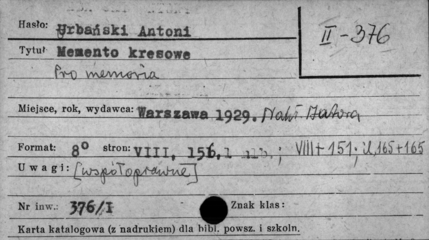 Hasło: Urbański Antoni
II-376
Tytuł Memento kresowe
Pro memoria
Miejsce, rok, wydawca: Warszawa 1929. Nakł. Autora
Format: 8° stron: VIII, 156, 1 ; VIII+151; il. 165+165
Uwagi: [współoprawne]
Nr inw.: 376/I Znak klas:
Karta katalogowa (z nadrukiem) dla bibl. powsz. i szkoln.